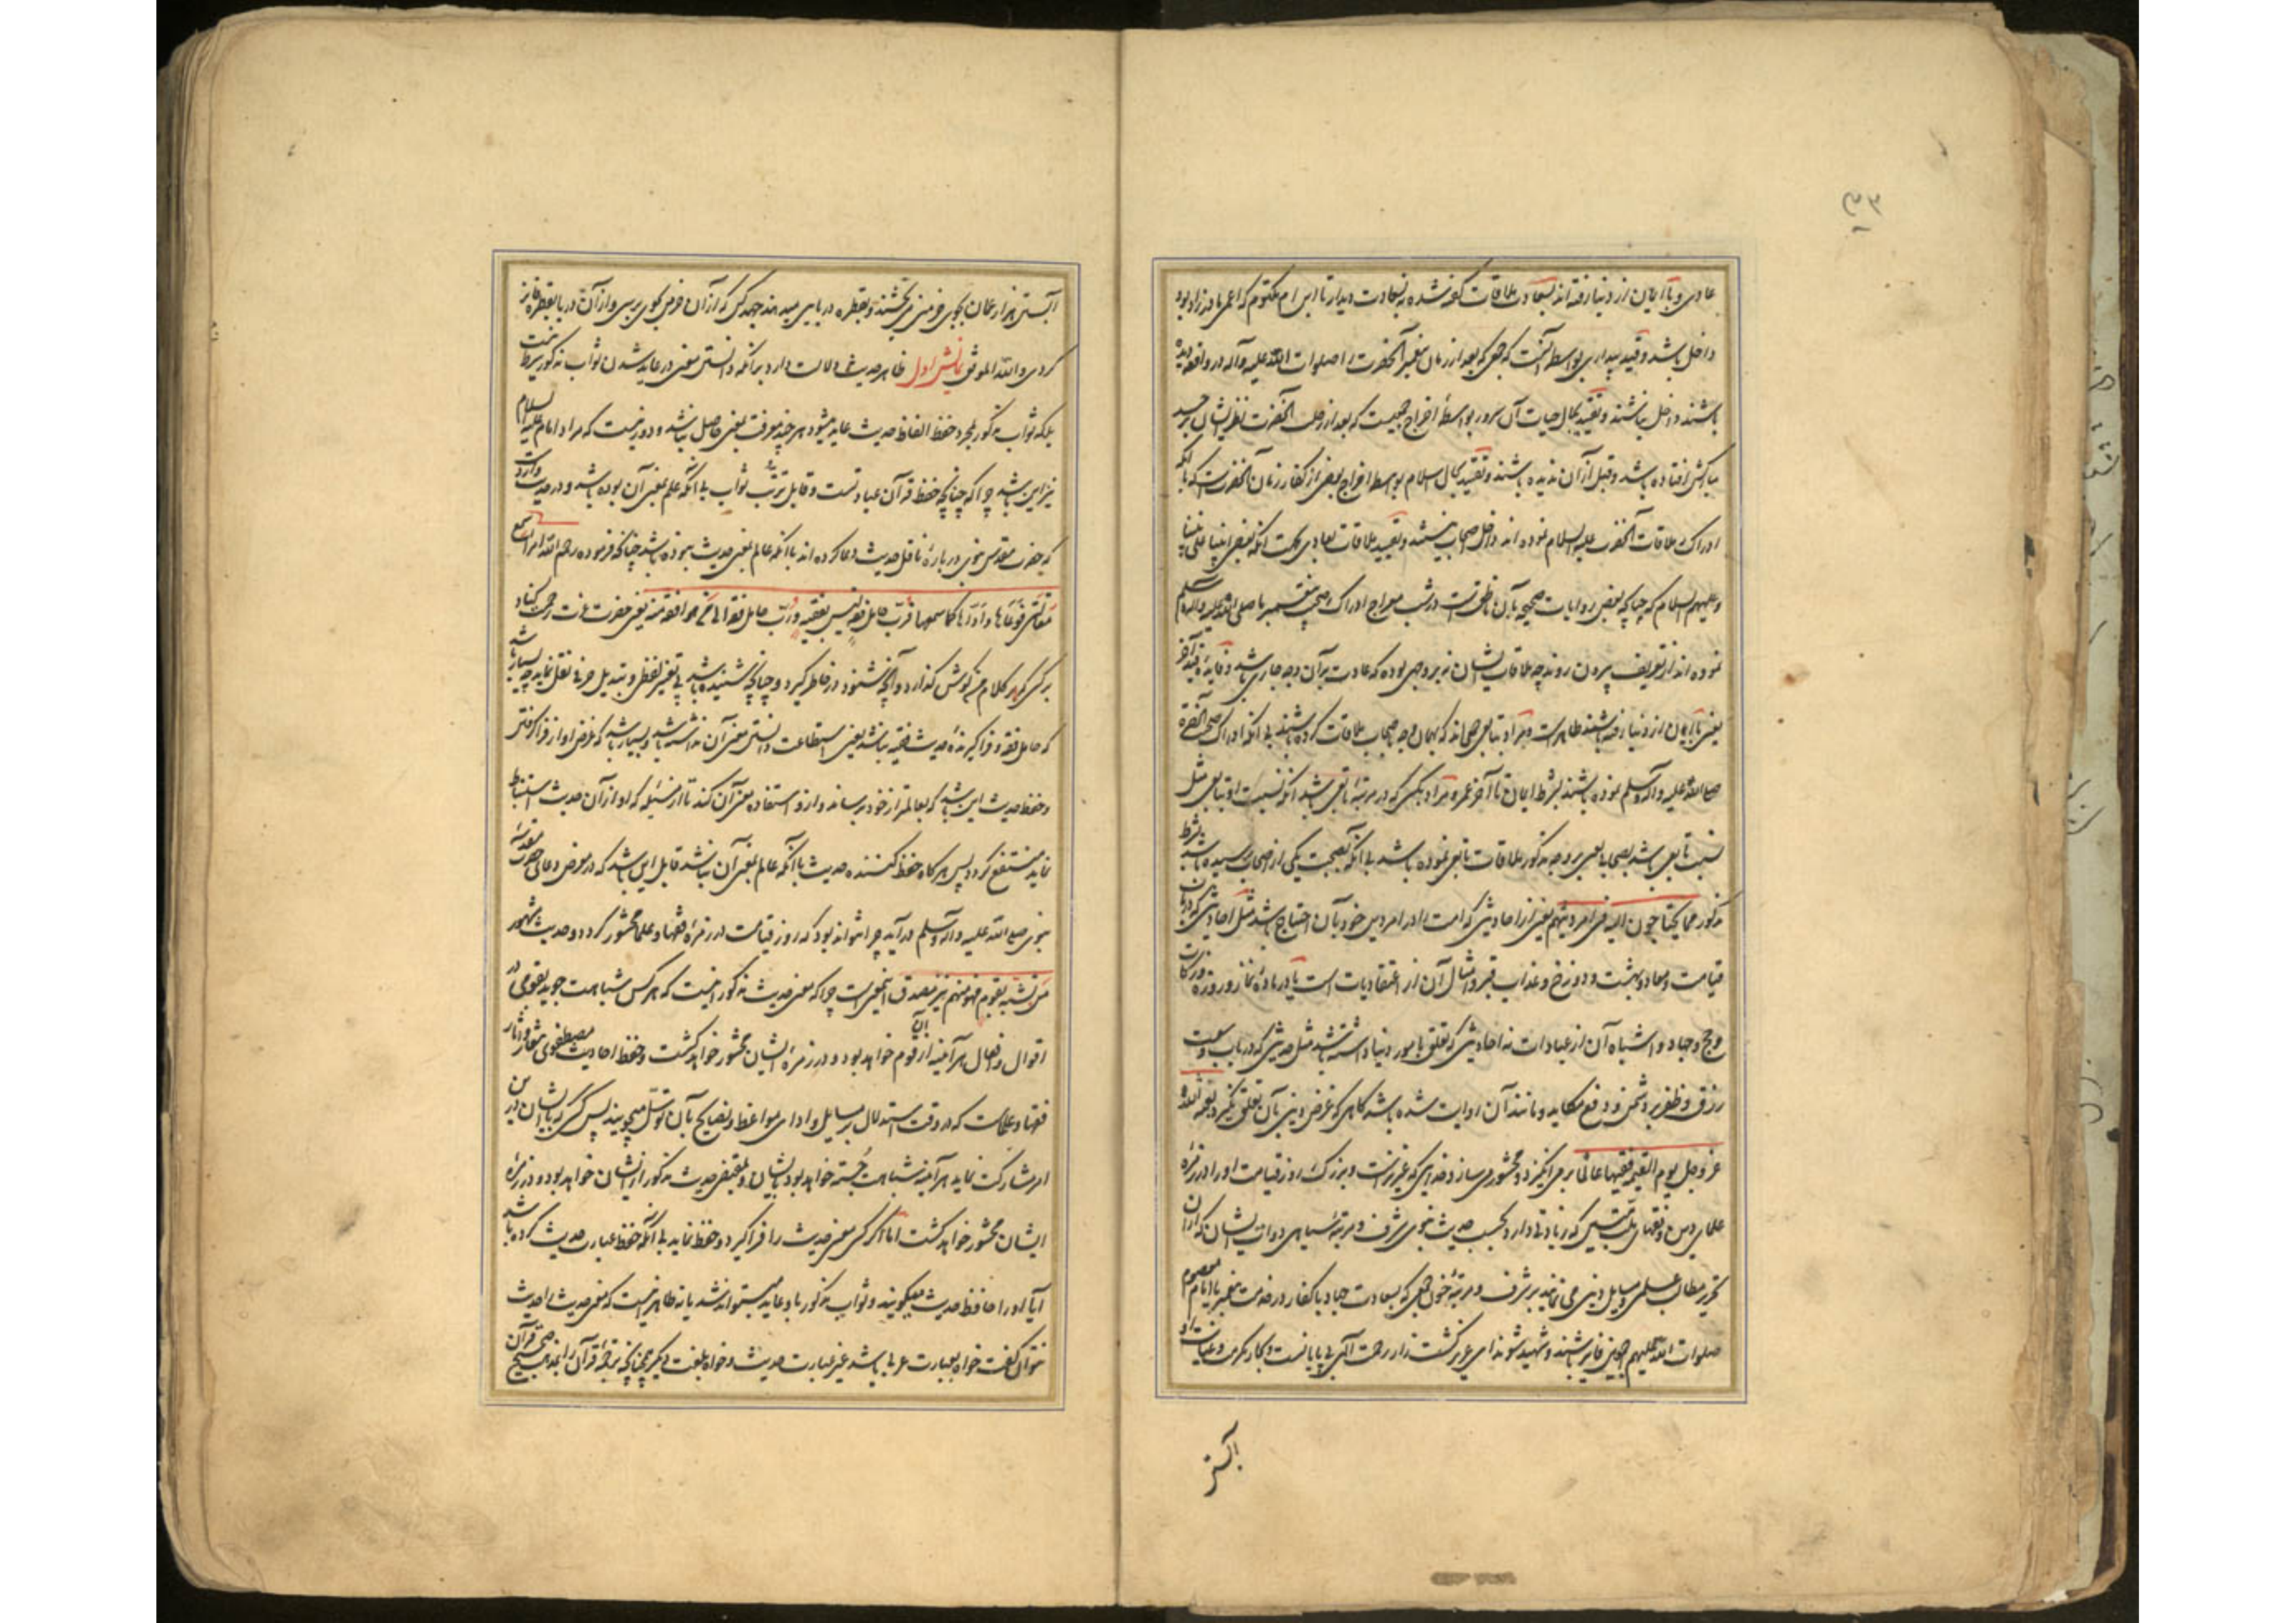 عادی و با ایمان از دنیا رفته اند بسعادت ملاقات گفته نشده به سعادت دیدار تا ابن ام مکتوم که اعمی مادرزاد بود
داخل باشد و قید بیداری بواسطه آنست که جمعی که بعد از زمان پیغمبر آنحضرت را صلوات الله علیه وآله در واقعه دیده
باشند داخل نباشند و تقیید بحال حیات آن سرور بواسطهٔ اخراج جمعیست که بعد از رحلت آنحضرت نظر ایشان بر جسد
مبارکش افتاده باشد و قبل از آن ندیده باشند و تقیید بحال اسلام بواسطه اخراج بعضی از کفار زمان آنحضرت است که با آنکه
ادراک ملاقات آنحضرت علیه السلام نموده اند داخل اصحاب نیستند و تقیید ملاقات بعادی بجهت آنکه بعضی انبیا علی نبینا
وعلیهم السلام که چنانکه بعضی روایات صحیحه بآن ناطق است در شب معراج ادراک صحبت پیغمبر ما صلی الله علیه وآله وسلم
نموده اند از تعریف بیرون روند چه ملاقات ایشان نه بر وجهی بوده که عادت بر آن وجه جاری باشد و فایدهٔ قید آخر
یعنی با ایمان از دنیا رفته باشند ظاهرست و مراد بتابعی جمعی اند که بهمان وجه باصحاب ملاقات کرده باشند بی آنکه ادراک صحبت آنحضرة
صلی الله علیه وآله وسلم نموده باشند بشرط ایمان تا آخر عمر و مراد بکسی که در مرتبهٔ تابعی باشد آنکه نسبت او بتابعی مثل
نسبت تابعی باشد بصحابی یعنی بر وجه مذکور ملاقات تابعی نموده باشد بی آنکه بصحبت یکی از صحابه رسیده باشد بشرط
مذکور مما یحتاجون الیه فی امر دینهم یعنی از احادیثی که امت را در امر دین خود بآن احتیاج باشد مثل احادیثی که در باب
قیامت و معاد و بهشت و دوزخ و عذاب قبر و امثال آن از اعتقادیات است یا در بارهٔ نماز و روزه و زکات
و حج و جهاد و اشباه آن از عبادات نه احادیثی که تعلق بامور دنیا داشته باشد مثل حدیثی که در باب وسعت
رزق و ظفر بر دشمن و دفع مکاید و مانند آن روایت شده باشد گاهی که غرض دینی بآن تعلق نگیرد بعثه الله
عز وجل یوم القیمه فقیها عالما بر می انگیزد و محشور می سازد خدای که عزیز است و بزرگ روز قیامت او را در زمرهٔ
علمای دین و فقهای که زیادتی دارد بحسب حدیث نبوی شرف و مرتبهٔ سیاهی دوات ایشان که از آن
تحریر مطالب علمی و مسایل دینی می نمایند بر شرف و مرتبهٔ خون جمعی که بسعادت جهاد با کفار در خدمت پیغمبر یا امام معصوم
صلوات الله علیهم اجمعین فایز باشند و شهید شوند ای عزیز کشت زار رحمت الهی بی پایانست و بحار مکرمت و عنایت او
آبستن
آبستن هزار عمان بجوی خرمنی می بخشند و بقطره دریایی میدهند جهد کن که از آن خرمن بجوی برسی و از آن دریا بقطره فایز
کردی والله الموفق نمایش اول ظاهر حدیث دلالت دارد بر آنکه دانستن معنی در عاید شدن ثواب مذکور شرط نیست
بلکه ثواب مذکور بمجرد حفظ الفاظ حدیث عاید میشود هر چند معرفت بمعنی حاصل نباشد و دور نیست که مراد امام علیه السلام
نیز این باشد چرا که چنانچه حفظ قرآن عبادتست و قابل ترتب ثواب بی آنکه علم بمعنی آن بوده باشد و در حدیث وارد است
که حضرت مقدس نبوی در بارهٔ ناقل حدیث دعا کرده اند با آنکه عالم بمعنی حدیث نبوده باشد چنانکه فرموده رحم الله امرا سمع
مقالتی فوعاها و اداها کما سمعها فرب حامل فقه لیس بفقیه و رب حامل فقه الی من هو افقه منه یعنی حضرت عزت رحمت کناد
بر کسی که بر کلام من گوش گذارد و آنچه شنود در خاطر گیرد و چنانچه شنیده باشد بی تغییر لفظی و تبدیل حرفی نقل نماید چه بسیار باشد
که حامل فقه و فراگیرندهٔ حدیث فقیه نباشد یعنی استطاعت دانستن معنی آن نداشته باشد و بسیار باشد که غرض او از فرا گرفتن
و حفظ حدیث این باشد که بعالمتر از خود برساند و ازو استفاده معنی آن کند تا از مسئله که او از آن حدیث استنباط
نماید منتفع گردد پس هرگاه حفظ کننده حدیث با آنکه عالم بمعنی آن نباشد قابل این باشد که در معرض دعای حضرت مقدسهٔ
نبوی صلی الله علیه وآله وسلم در آید چرا نتواند بود که روز قیامت در زمرهٔ فقها و علما محشور گردد و حدیث مشهور
من تشبه بقوم فهو منهم نیز مصدق اینمعنی است چرا که معنی حدیث مذکور اینست که هر کس شباهت جوید بقومی در
اقوال و افعال هر آینه از آن قوم خواهد بود و در زمرهٔ ایشان محشور خواهد گشت و حفظ احادیث مصطفوی شعار و دثار
فقها و علماست که در وقت استدلال بر مسایل و ادای مواعظ و نصایح بآن توسل میجویند پس کسی که با ایشان در این
امر مشارکت نماید هر آینه شباهت جسته خواهد بود بایشان و بمقتضی حدیث مذکور از ایشان خواهد بود و در زمرهٔ
ایشان محشور خواهد گشت اما اگر کسی معنی حدیث را فراگیرد و حفظ نماید بی آنکه حفظ عبارت حدیث کرده باشد
آیا او را حافظ حدیث میگویند و ثواب مذکور باو عاید میتواند شد یا نه ظاهر اینست که معنی حدیث را حدیث
نتوان گفت خواه بعبارت عربی باشد غیر عبارت حدیث و خواه بلغت دیگر همچنانچه ترجمهٔ قرآن را